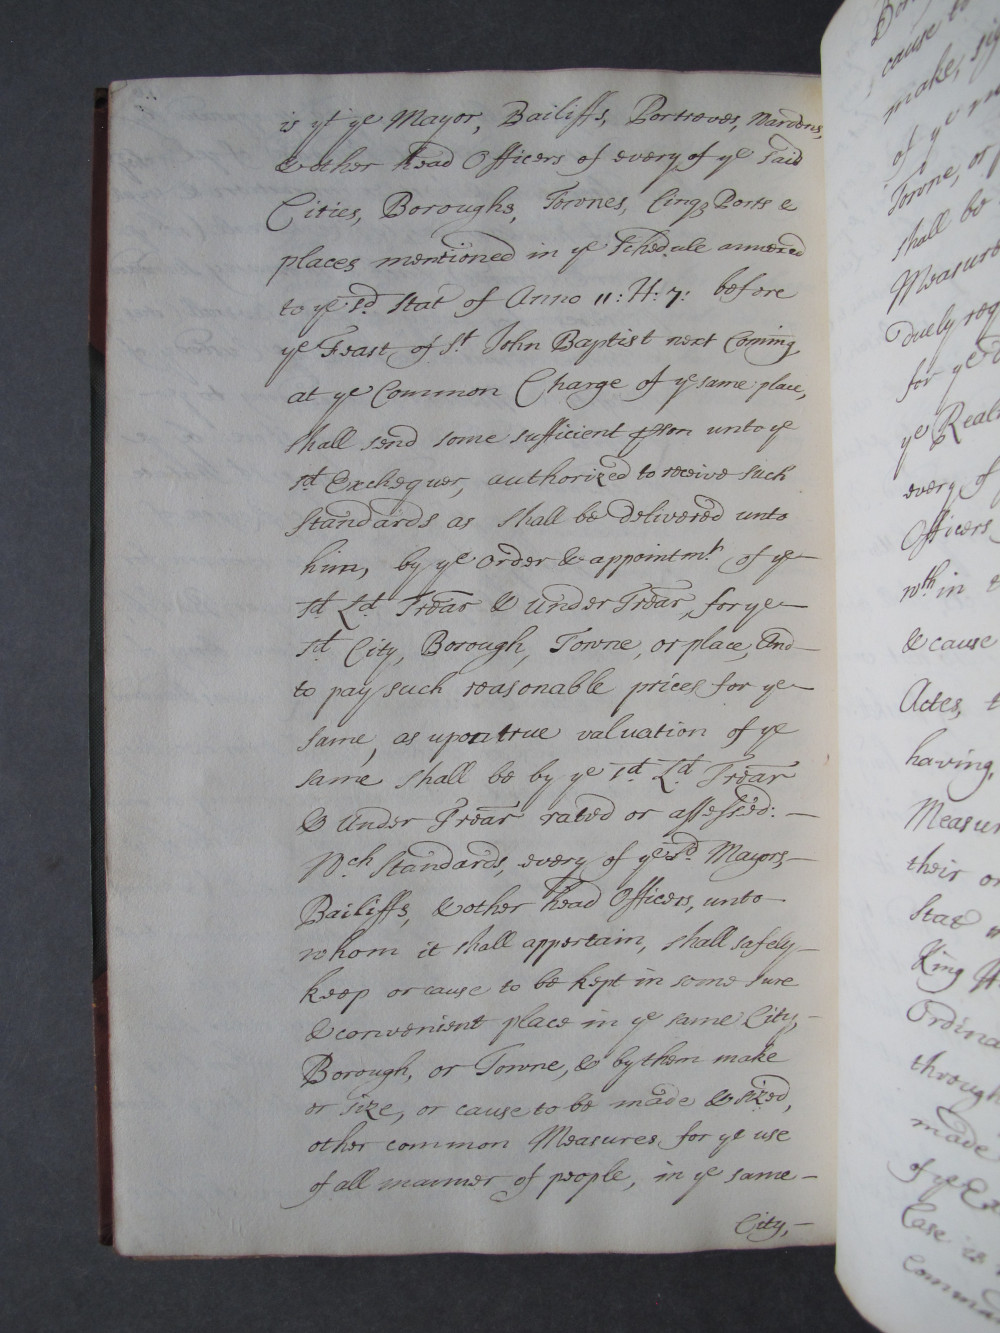 is yt ye Mayor, Bailiffs, Portreves, Wardens,
& other head Officers of every of ye said
Cities, Boroughs, Townes, Cinq Ports &
places mentioned in ye Schedule annexed
to ye sd Stat of Anno 11: H: 7: before
ye Feast of St John Baptist next Coming
at ye Common Charge of ye same place,
shall send some sufficient pson unto ye
sd Exchequer, authorized to receive such
Standards as shall be delivered unto
him, by ye Order & appointmt of ye
sd Ld Trear & Under Trear, for ye
sd City, Borough, Towne, or place, And
to pay such reasonable prices for ye
same, as upon true valuation of ye
same shall be by ye sd Ld Trear
& Under Trear rated or assessed:
Wch Standards, every of ye sd Mayors
Bailiffs, & other head Officers, unto
whom it shall appertain, shall safely
keep or cause to be kept in some sure
& convenient place in ye same City,
Borough, or Towne, & by them make
or size, or cause to be made & sized,
other common Measures for ye use
of all manner of people, in ye same
City,
cause to
make, si
of ye
Towne, or
shall be
Measure
Duely req
for ye
ye Real
every of
Officers
wth in
& cause
Actes, t
having,
Measur
their or
Stat
King H
Ordina
through
made
of ye Ex
Case is
Comma